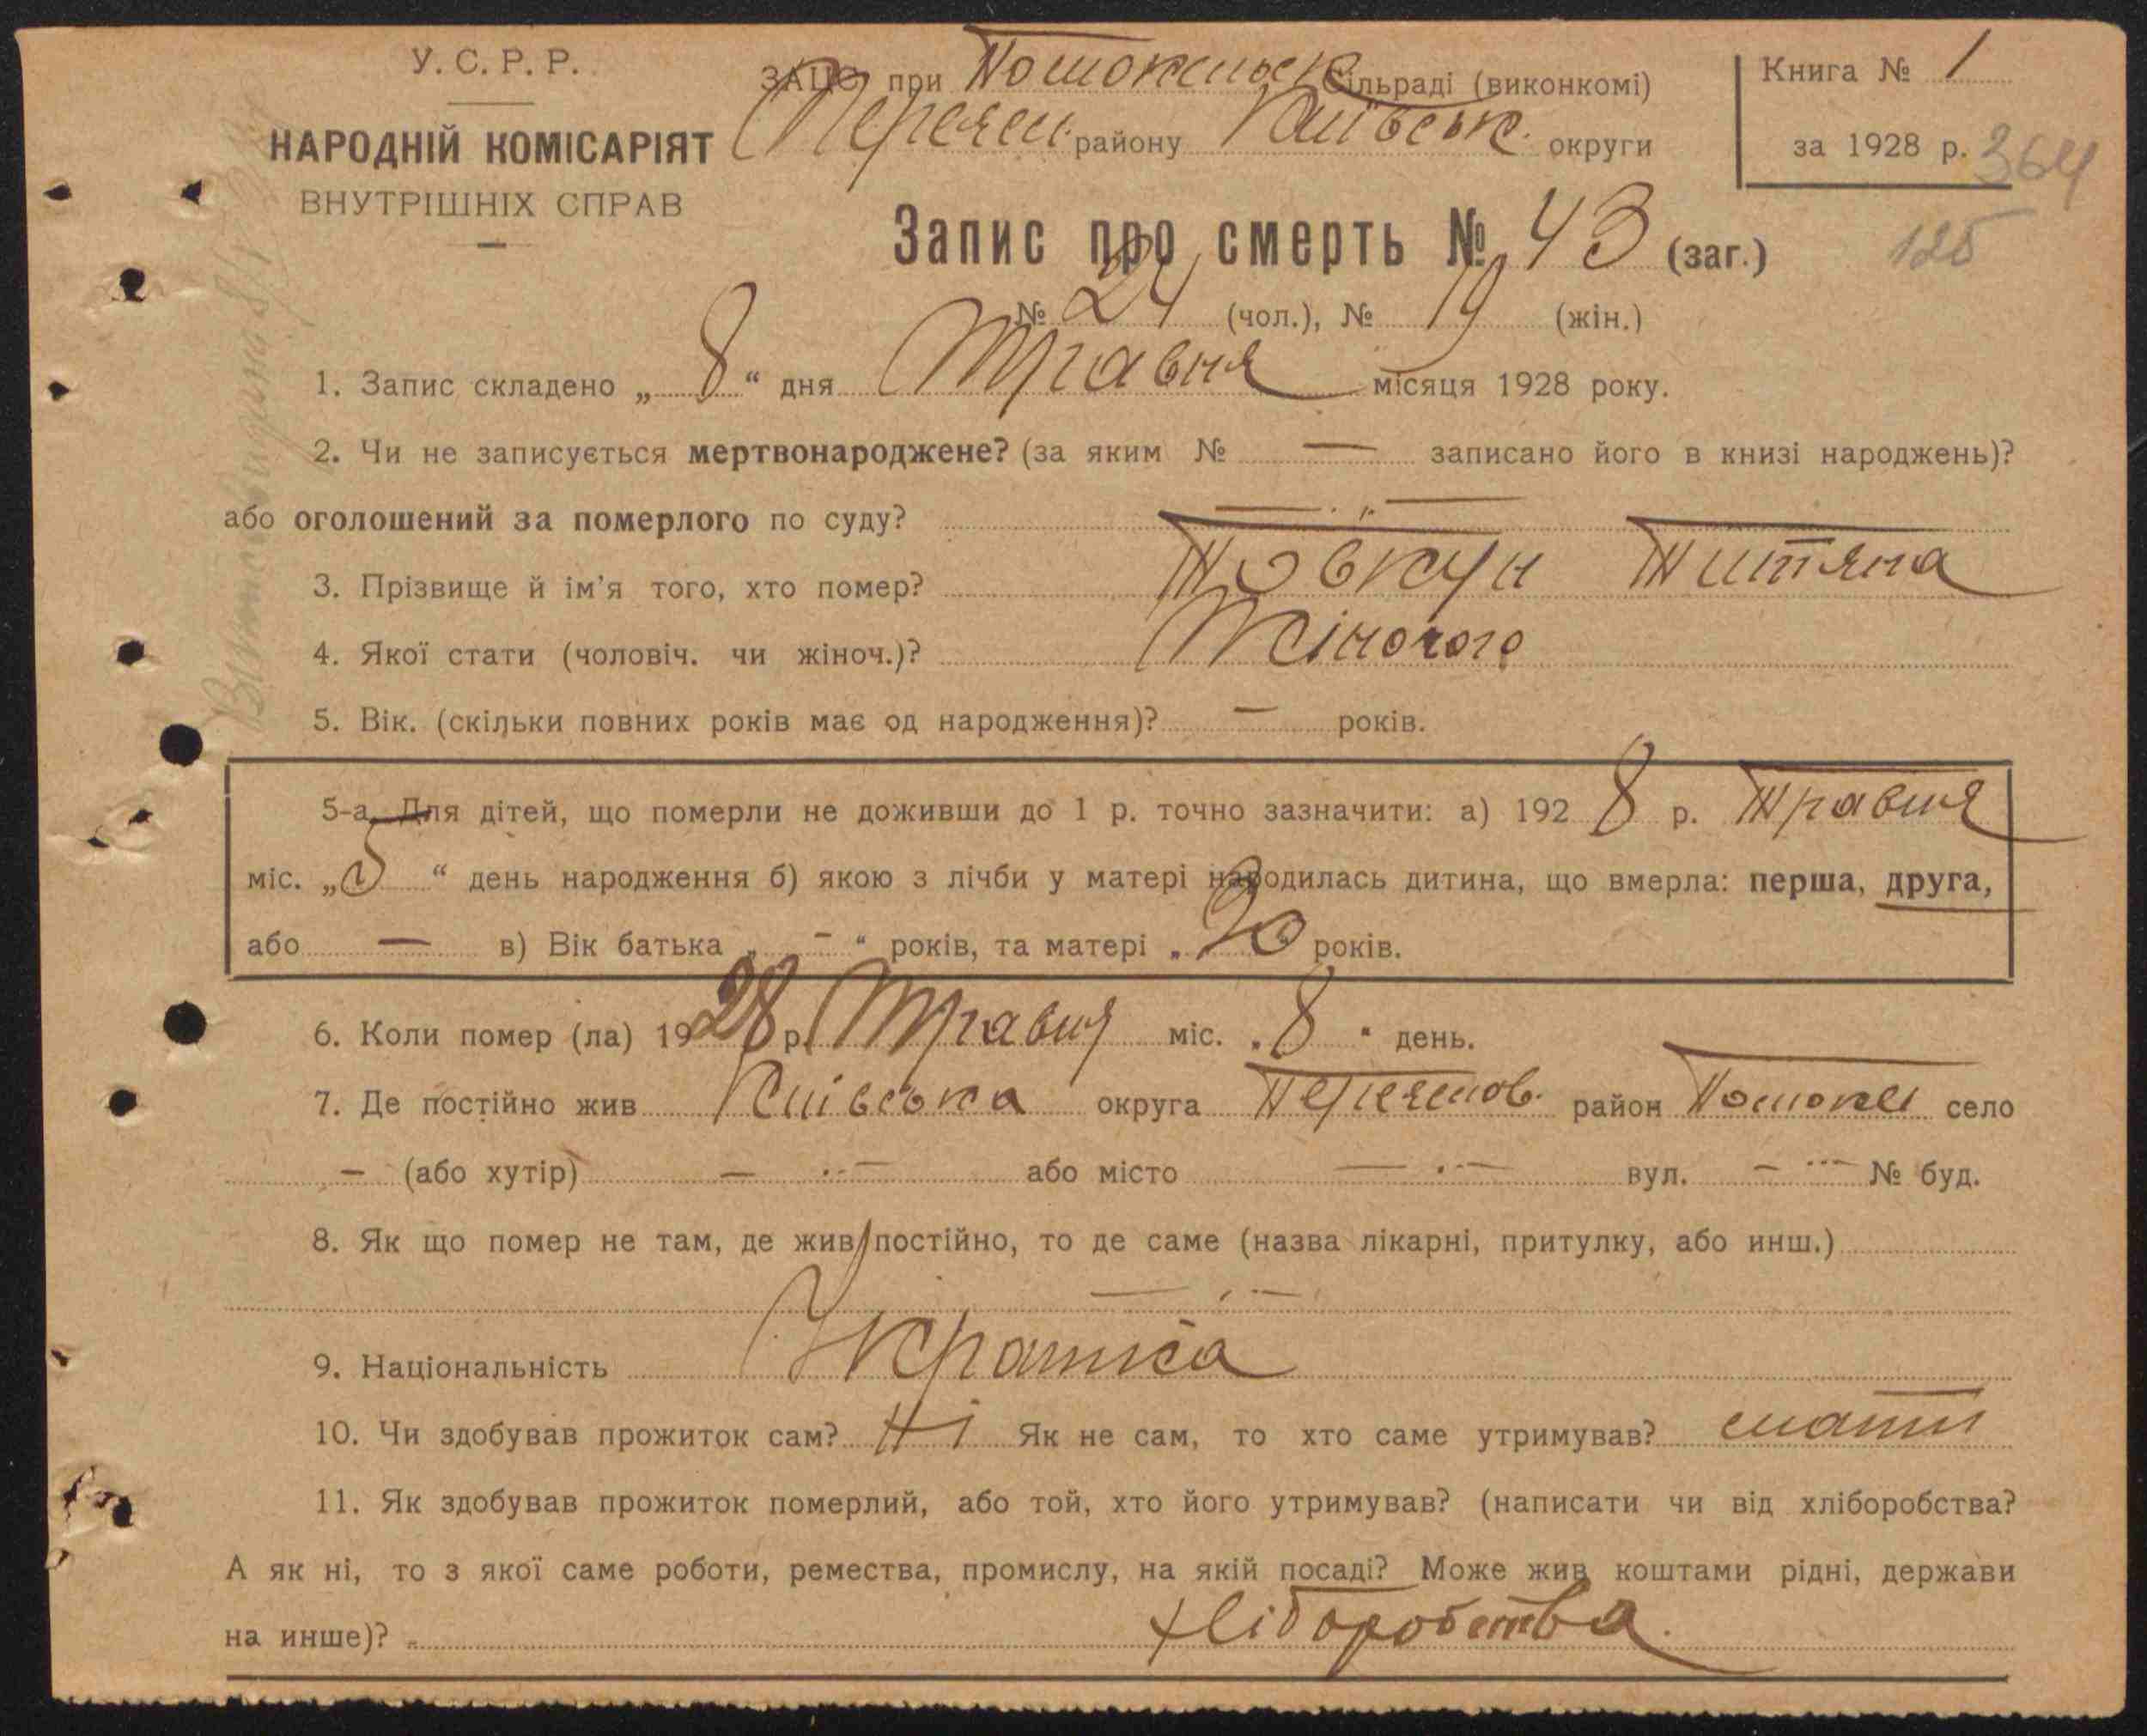 У. С. Р. Р.
НАРОДНІЙ КОМІСАРІЯТ
ВНУТРІШНІХ СПРАВ
ЗАЦС при Потокськ Сільраді (виконкомі)
Переяс. району Київськ. округи
Книга № 1
за 1928 р.
364
125
Запис про смерть № 43 (заг.)
№ 24 (чол.), № 19 (жін.)
1. Запис складено „ 8 “ дня Травня місяця 1928 року.
2. Чи не записується мертвонароджене? (за яким № — записано його в книзі народжень)?
або оголошений за померлого по суду? — „ —
3. Прізвище й ім'я того, хто помер? Товкун Титяна
4. Якої стати (чоловіч. чи жіноч.)? Жіночого
5. Вік. (скільки повних років має од народження)? — років.
5-а. Для дітей, що померли не доживши до 1 р. точно зазначити: а) 1928 р. Травня
міс. „ 5 “ день народження б) якою з лічби у матері народилась дитина, що вмерла: перша, друга,
або — в) Вік батька „ – “ років, та матері „ 20 років.
6. Коли помер (ла) 1928 р. Травня міс. „ 8 “ день.
7. Де постійно жив Київська округа Переяслов. район Потоки село
– (або хутір) — „ — або місто — „ — вул. — „ — № буд.
8. Як що помер не там, де жив постійно, то де саме (назва лікарні, притулку, або инш.)
— „ —
9. Національність
10. Чи здобував прожиток сам? Ні Як не сам, то хто саме утримував? мати
11. Як здобував прожиток померлий, або той, хто його утримував? (написати чи від хліборобства?
А як ні, то з якої саме роботи, ремества, промислу, на якій посаді? Може жив коштами рідні, держави
на инше)? Хліборобства